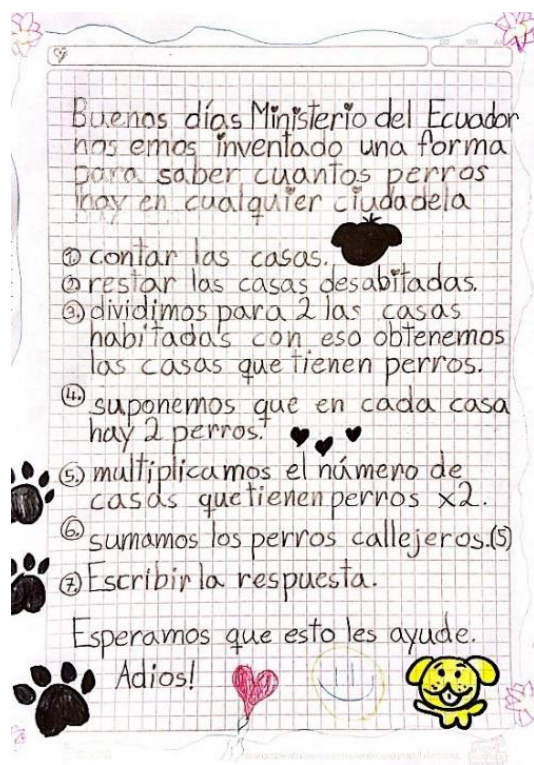 Buenos días Ministerio del Ecuador
nos emos inventado una forma
para saber cuantos perros
hay en cualquier ciudadela
1. contar las casas.
2. restar las casas desabitadas.
3. dividimos para 2 las casas
habitadas con eso obtenemos
las casas que tienen perros.
4. suponemos que en cada casa
hay 2 perros.
5. multiplicamos el número de
casas que tienen perros x2.
6. sumamos los perros callejeros.(5)
7. Escribir la respuesta.
Esperamos que esto les ayude.
Adios!